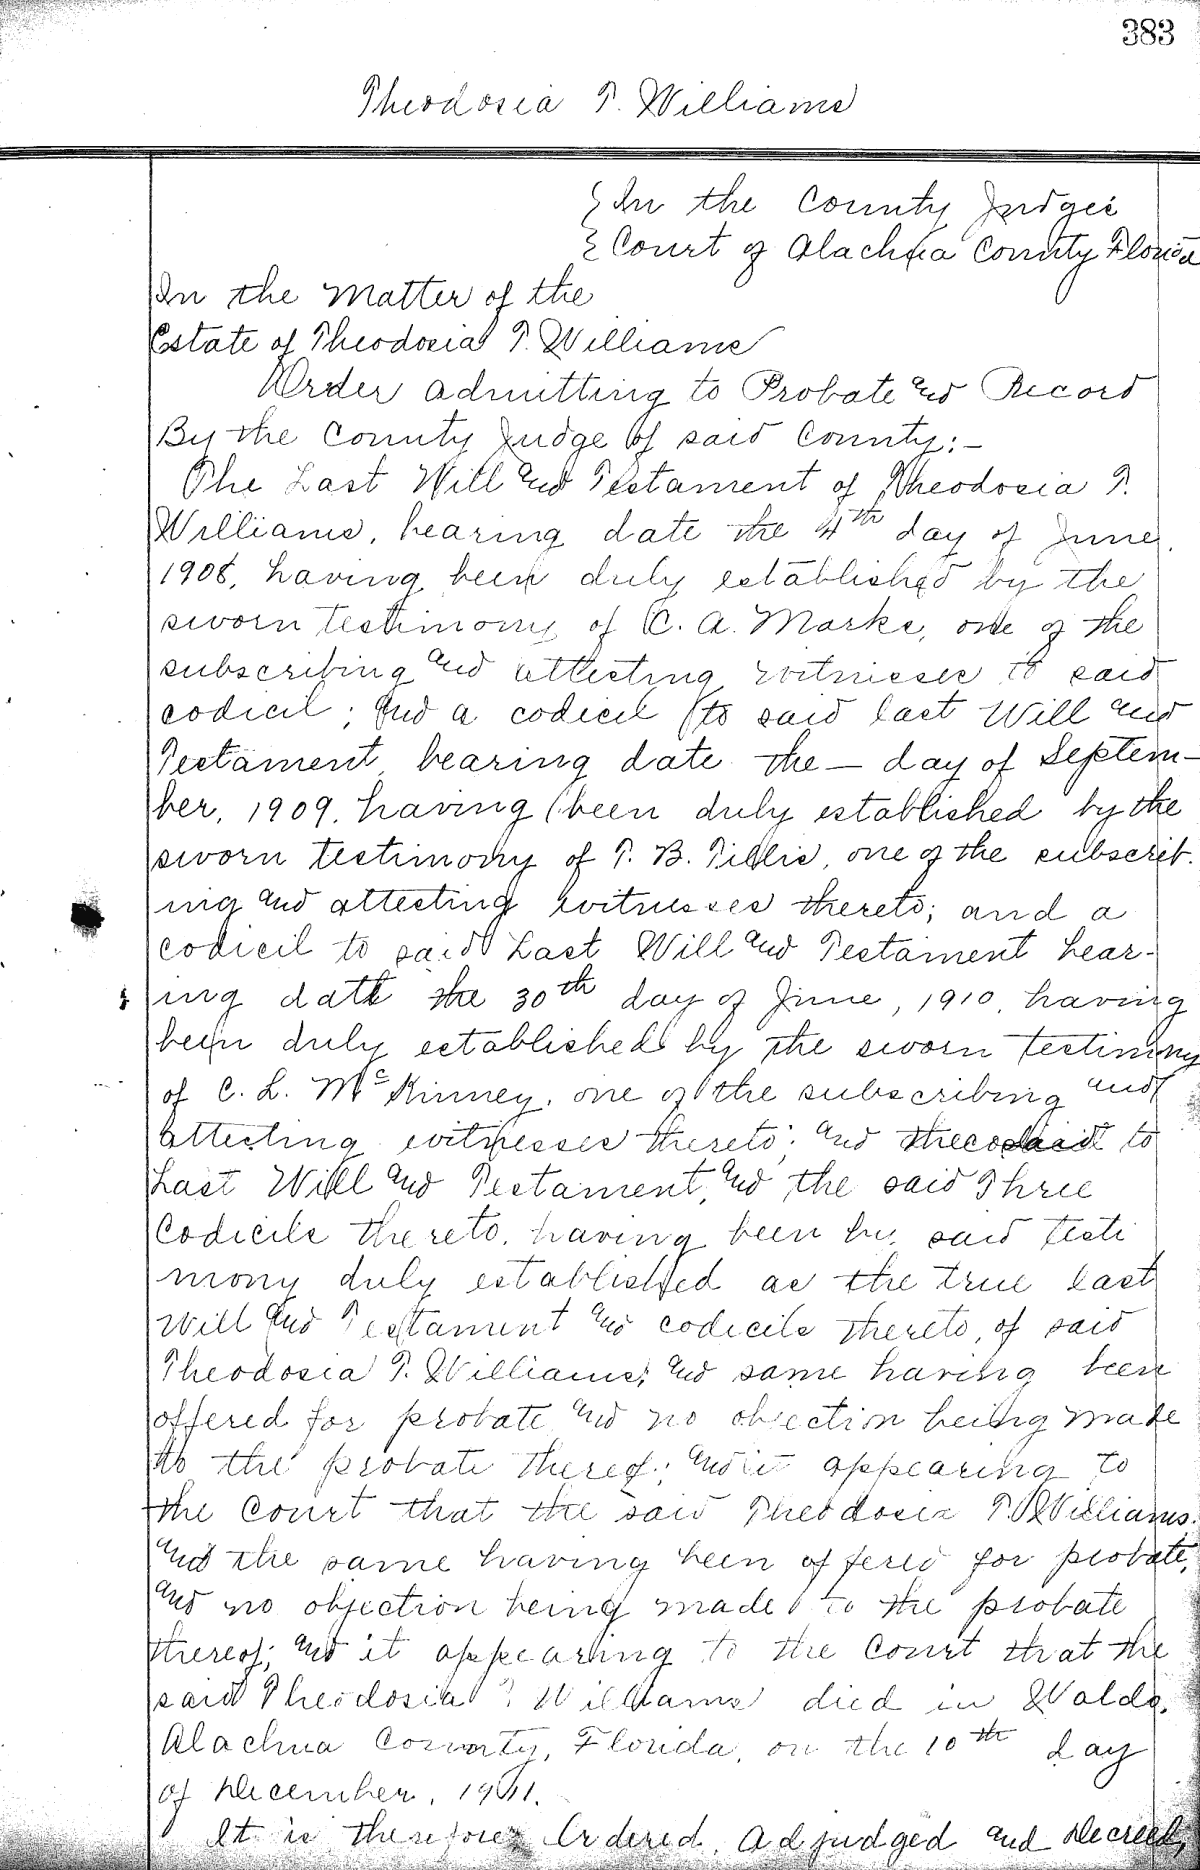 383
Theodosia T. Williams
In the County Judges
Court of Alachua County Florida
In the Matter of the
Estate of Theodosia T. Williams
Order admitting to Probate and Record
By the County Judge of said County:-
The Last Will and Testament of Theodosia T.
Williams, bearing date the 4th day of June,
1908, having been duly established by the
sworn testimony of C. A. Marks, one of the
subscribing and attesting witnesses to said
codicil; and a codicil to said last Will and
Testament bearing date the — day of Septem-
ber, 1909, having been duly established by the
sworn testimony of T. B. Tillis, one of the subscrib-
ing and attesting witnesses thereto; and a
codicil to said Last Will and Testament bear-
ing date the 30th day of June, 1910, having
been duly established by the sworn testimony
of C. L. McKinney, one of the subscribing and
attesting witnesses thereto; and the said to
Last Will and Testament, and the said Three
Codicils thereto, having been by said testi
mony duly established as the true last
Will and Testament and codicils thereto, of said
Theodosia T. Williams; and same having been
offered for probate and no objection being made
to the probate thereof; and it appearing to
the Court that the said Theodosia T. Williams.
and the same having been offered for probate,
and no objection being made to the probate
thereof; and it appearing to the Court that the
said Theodosia T. Williams died in Waldo,
Alachua County, Florida, on the 10th day
of December, 1911.
It is therefore Ordered, adjudged and decreed,